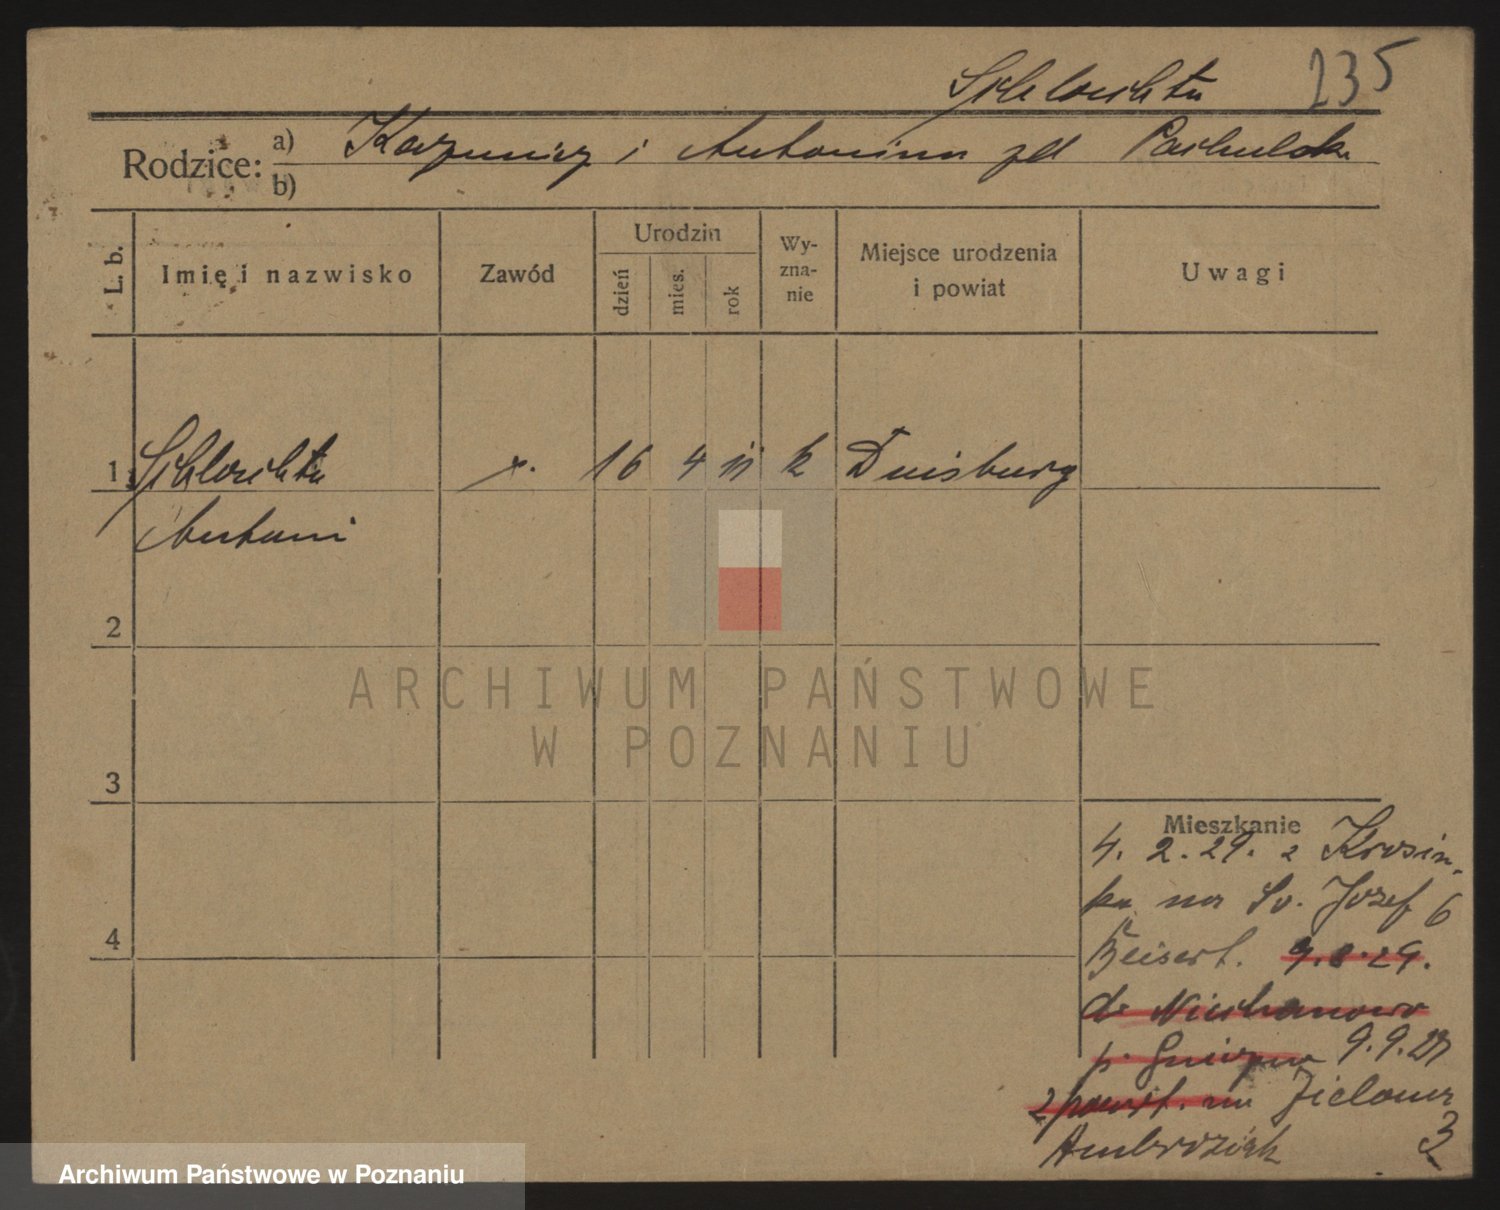 235
Rodzice: a) Kazimierz i Antonina zd
b)
L. b. Imię i nazwisko Zawód Urodzin dzień mies. rok Wy-zna-nie Miejsce urodzenia i powiat Uwagi
1 16 4 11 k Duisburg
Antoni
2
3
4
Mieszkanie
4. 2. 29. z Krosin-
ka na Św. Józef 6
Beisert. 9.8.29.
do Niechanowo
p. Gniezno 9.9.29
z powrt. na Zielona
Ambroziak 3
ARCHIWUM PAŃSTWOWE
W POZNANIU
Archiwum Państwowe w Poznaniu